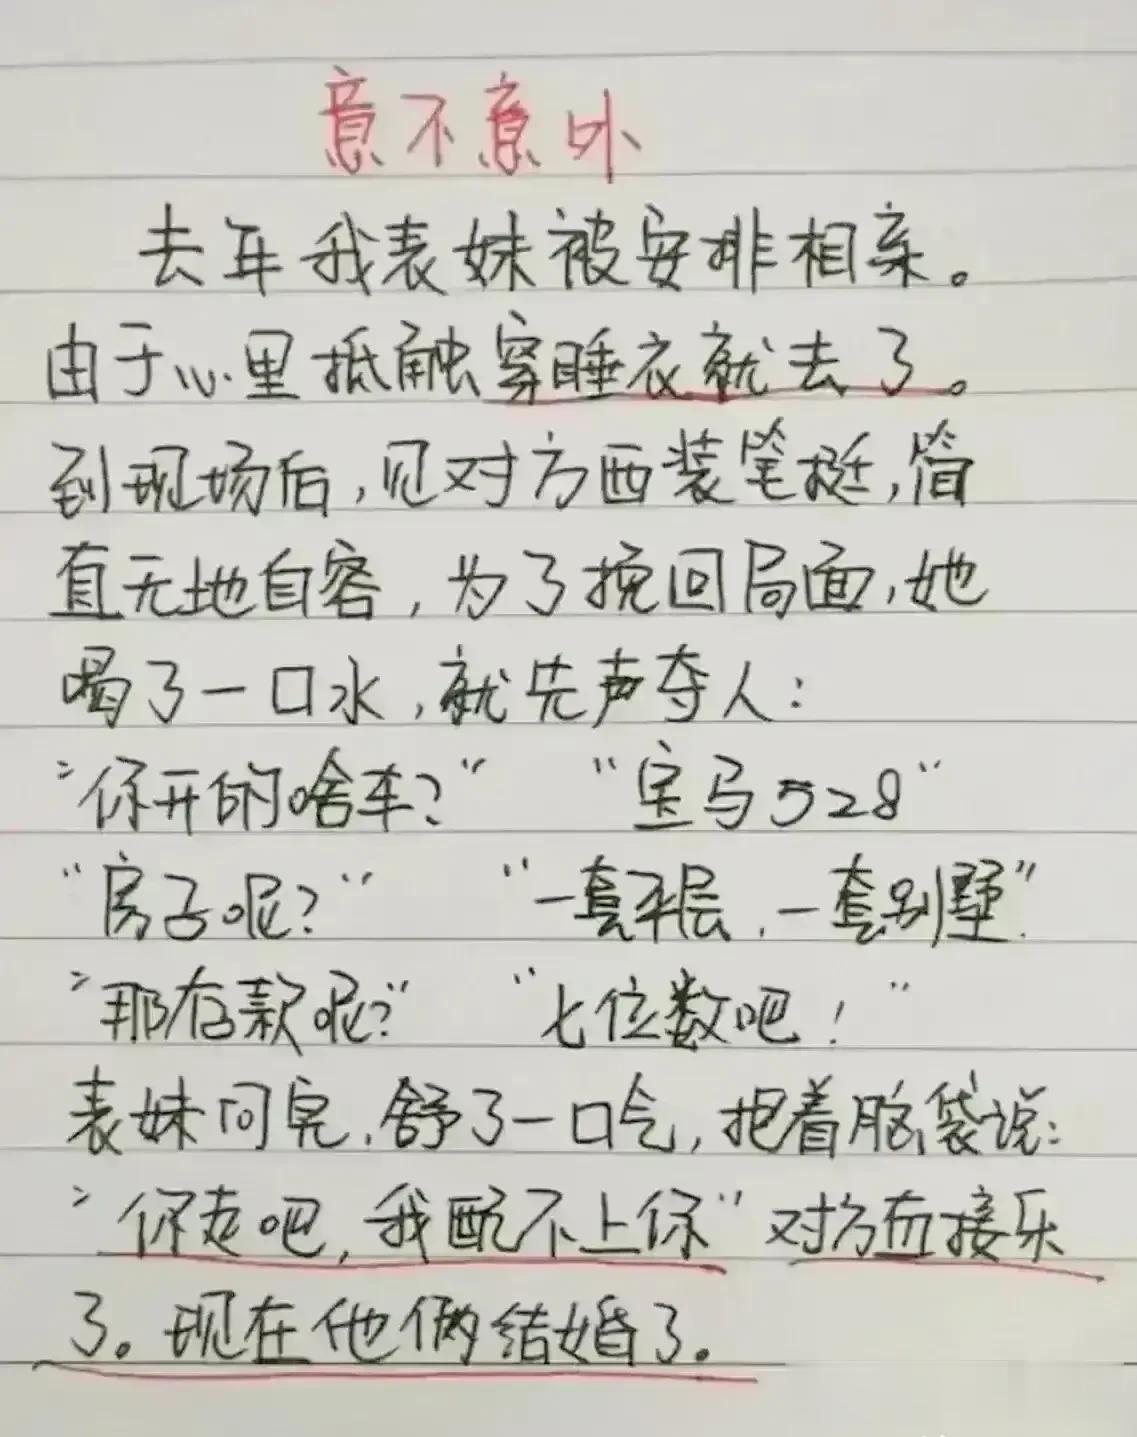 意不意外
去年我表妹被安排相亲。
由于心里抵触穿睡衣就去了。
到现场后,见对方西装笔挺,简
直无地自容,为了挽回局面,她
喝了一口水,就先声夺人:
"你开的啥车?" "宝马528"
"房子呢?" "一套平层,一套别墅"
"那存款呢?" "七位数吧!"
表妹问完,舒了一口气,抱着脑袋说:
"你走吧,我配不上你"对方直接乐
了。现在他俩结婚了。